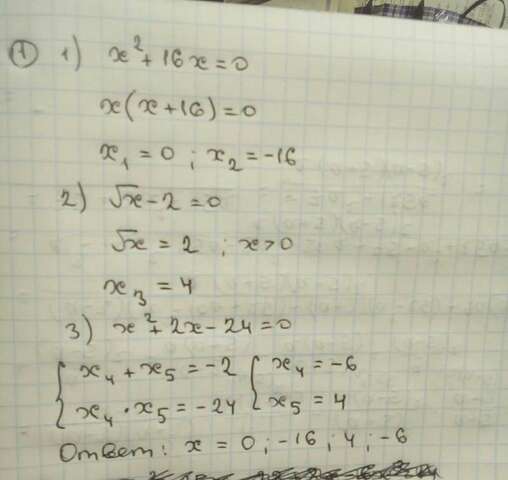 ① 1) x² + 16x = 0
x(x + 16) = 0
x₁ = 0 ; x₂ = -16
2) √x - 2 = 0
√x = 2 ; x > 0
x₃ = 4
3) x² + 2x - 24 = 0
{ x₄ + x₅ = -2 { x₄ = -6
{ x₄ · x₅ = -24 { x₅ = 4
Ответ: x = 0 ; -16 ; 4 ; -6